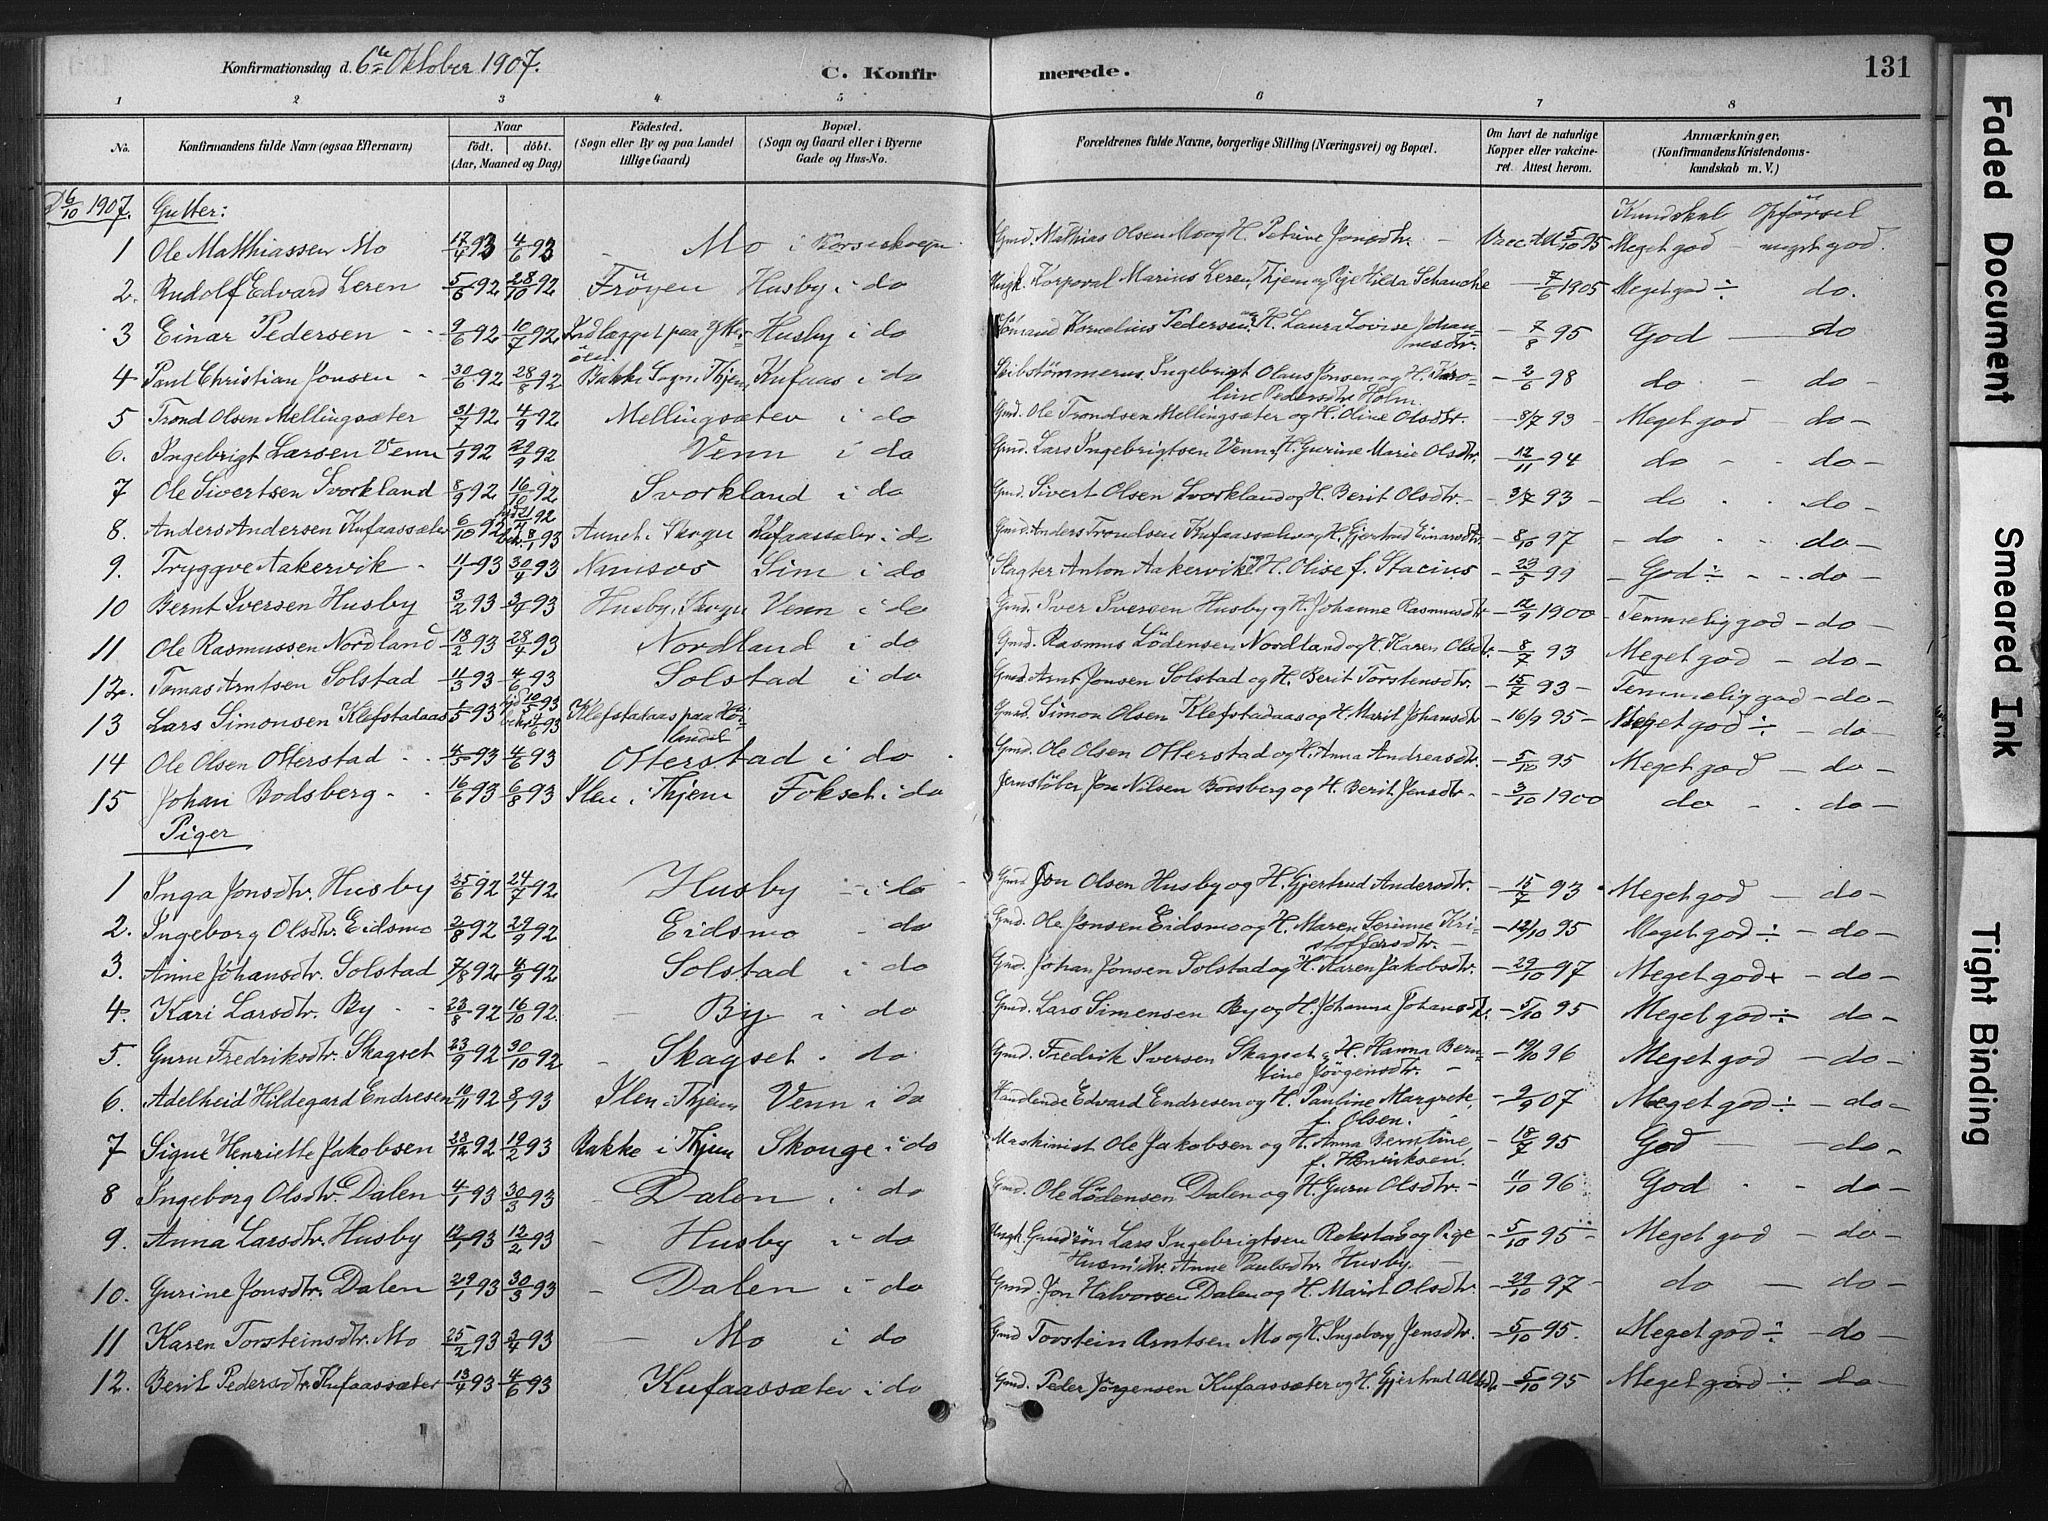 Konfirmationsdag d. 6te Oktober 1907. C. Konfirmerede. 131
1 2 3 4 5 6 7 8
No. Konfirmandens fulde Navn (ogsaa Efternavn) Naar Födt. döbt. (Aar, Maaned og Dag) Födested. (Sogn eller By og paa Landet tillige Gaard) Bopæl. (Sogn og Gaard eller i Byerne Gade og Hus-No. Forældrenes fulde Navne, borgerlige Stilling (Næringsvei) og Bopæl. Om havt de naturlige Kopper eller vakcineret. Attest herom. Anmærkninger. (Konfirmandens Kristendomskundskab m. V.)
D. 6/10 1907. Gutter: Kundskab Opförsel
1 Ole Matthiassen Mo 17/4 93 4/6 93 - Mo i Börseskogn Gmd. Mathias Olsen Mo og H. Petrine Jonsdtr. - Vacc. Att 5/10 95 Meget god - meget god.
2. Rudolf Edvard Leren 5/6 92 28/10 92 Fröyen Husby i do Ungk. Korporal Marius Leren, Thjem og Pige Hilda Schanche - 7/6 1905 Meget god ÷ do.
3 Einar Pedersen 9/6 92 10/7 92 Husby i do Sömand Kornelius Pedersen og H. Laura Lovise Johannesdtr. - 7/8 95 God - do
4 Paul Christian Jonsen 30/6 92 28/8 92 Bakke Sogn, Thjem Kufaas i do Skibstömmerm. Ingebrigt Olaus Jonsen og H. Karoline Pedersdtr Holm - 2/6 98 do - do -
5 Trond Olsen Mellingsæter 31/7 92 4/9 92 Mellingsæter i do Gmd. Ole Trondsen Mellingsæter og H. Oline Olsdtr. - 8/7 93 Meget god - do -
6. Ingebrigt Larsen Venn 1/9 92 29/9 92 Venn i do Gmd. Lars Ingebrigtsen Venn, H. Gurine Marie Olsdtr. - 12/11 94 do - do -
7 Ole Sivertsen Svorkland 8/9 92 16/10 92 Svorkland i do Gmd. Sivert Olsen Svorkland og H. Berit Olsdtr. - 3/7 93 - do - do -
8. Anders Andersen Kufaassæter 6/10 92 8/1 93 Kufaassæter i do Gmd. Anders Trondsen Kufaassæter og H. Gjertrud Einarsdtr - 8/10 97 - do - do -
9. Tryggve Aakervik 11/1 93 30/4 93 Namsos Sim i do Slagter Anton Aakervik og H. Olise f. Stacius - 23/5 99 - God ÷ - do -
10 Bernt Iversen Husby 3/2 93 3/4 93 Husby, Skogn Venn i do Gmd. Iver Iversen Husby og H. Johanne Rasmusdtr - 12/9 1900 - Temmelig god - do -
11 Ole Rasmussen Nordland 18/2 93 28/4 93 Nordland i do Gmd. Rasmus Lödensen Nordland og H. Karen Olsdtr. - 8/7 93 Meget god - do -
12. Tomas Arntsen Solstad 11/3 93 4/6 93 Solstad i do Gmd. Arnt Jonsen Solstad og H. Berit Torstensdtr. - 15/7 93 - Temmelig god - do -
13 Lars Simonsen Klefstadaas 1/5 93 4/6 93 Klefstadaas paa Hölandet Gmd. Simon Olsen Klefstadaas og H. Marit Johansdtr - 16/9 95 - Meget god ÷ - do -
14 Ole Olsen Otterstad 4/5 93 4/6 93 Otterstad i do Gmd. Ole Olsen Otterstad og H. Anna Andreasdtr. - 5/10 95 Meget god - do -
15 Johan Bodsberg 16/6 93 6/8 93 Ilen i Thjem Fokset i do Jernstöber Jon Nilsen Bodsberg og H. Berit Jensdtr - - 3/10 1900 do - do -
Piger
1 Inga Jonsdtr. Husby 25/6 92 24/7 92 Husby - i do Gmd Jon Olsen Husby og H. Gjertrud Andersdtr. - 15/7 93 Meget god - do -
2. Ingeborg Olsdtr. Eidsmo 2/8 92 29/9 92 Eidsmo - do Gmd. Ole Jonsen Eidsmo og H. Maren Serinne Kristoffersdtr. - - 12/10 95 Meget god ÷ - do -
3. Anne Johansdtr. Solstad 7/8 92 4/9 92 Solstad i do Gmd. Johan Jonsen Solstad og H. Karen Jakobsdtr. - 29/10 97 Meget god + - do -
4. Kari Larsdtr. By 23/8 92 16/10 92 - By i do Gmd. Lars Simensen By og H. Johanna Johansdtr. - 5/10 95 Meget god ÷ - do -
5. Guru Fredriksdtr. Skagset 23/9 92 30/10 92 - Skagset i do Gmd. Fredrik Iversen Skagset, H. Hanna Berntine Jörgensdtr. - - 19/10 96 Meget god - do -
6. Adelheid Hildegard Endresen 10/11 92 8/1 93 Ilen i Thjem Venn i do Handlende Edvard Endresen og H. Pauline Margrete, f. Olsen. - 2/9 07 Meget god ÷ - do -
7 Signe Henriette Jakobsen 23/12 92 19/2 93 Bakke i Thjem Skauge i do Maskinist Ole Jakobsen og H. Anna Berntine, f. Henriksen. - 18/7 95 God do -
8 Ingeborg Olsdtr. Dalen 4/1 93 30/3 93 - Dalen i do Gmd. Ole Lödensen Dalen og H. Guru Olsdtr. - - 11/10 96 God - do -
9. Anna Larsdtr. Husby 12/1 93 12/2 93 - Husby i do Ungk. Gmdsön Lars Ingebrigtsen Rekstad og Pige Husmdtr Anne Paulsdtr. Husby - - 5/10 95 - Meget god - do -
10. Gurine Jonsdtr. Dalen 29/1 93 30/3 93 - Dalen i do Gmd. Jon Halvorsen Dalen og H. Marit Olsdtr. - 29/10 97 - do - do -
11 Karen Torsteinsdtr. Mo 25/2 93 2/4 93 - Mo i do Gmd Torstein Arntsen Mo og H. Ingeborg Jensdtr. - 5/10 95. Meget god ÷ - do -
12. Berit Pedersdtr. Kufaassæter 13/4 93 4/6 93 Kufaassæter i do Gmd. Peder Jörgensen Kufaassæter og H. Gjertrud - 5/10 95 Meget god ÷ - do -
Faded Document
Smeared Ink
Tight Binding